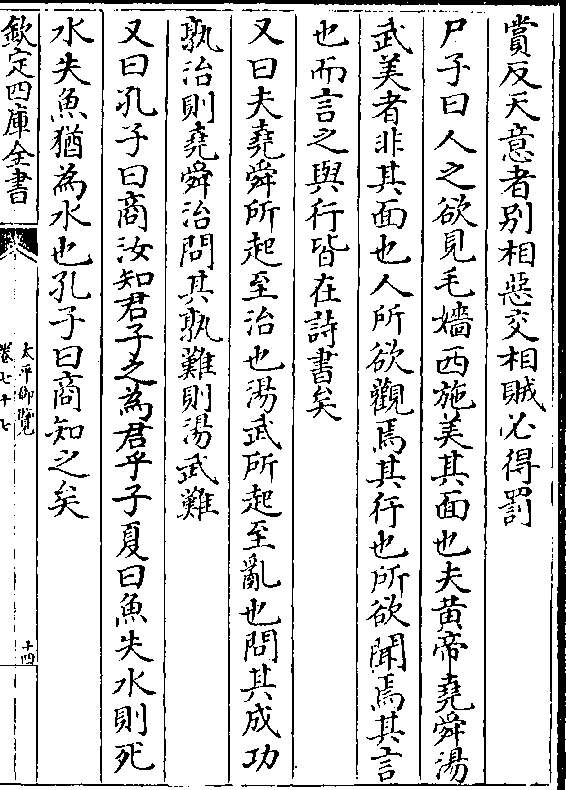 賞反天意者别相惡交相賊必得罰
尸子曰人之欲見毛嬙西施美其面也夫黄帝堯舜湯
武美者非其面也人所欲觀焉其行也所欲聞焉其言
也而言之與行皆在詩書矣
又曰夫堯舜所起至治也湯武所起至亂也問其成功
孰治則堯舜治問其孰難則湯武難
又曰孔子曰商汝知君子之為君乎子夏曰魚失水則死
水失魚猶為水也孔子曰商知之矣
欽定四庫全書
太平御覽
卷七十七
十四